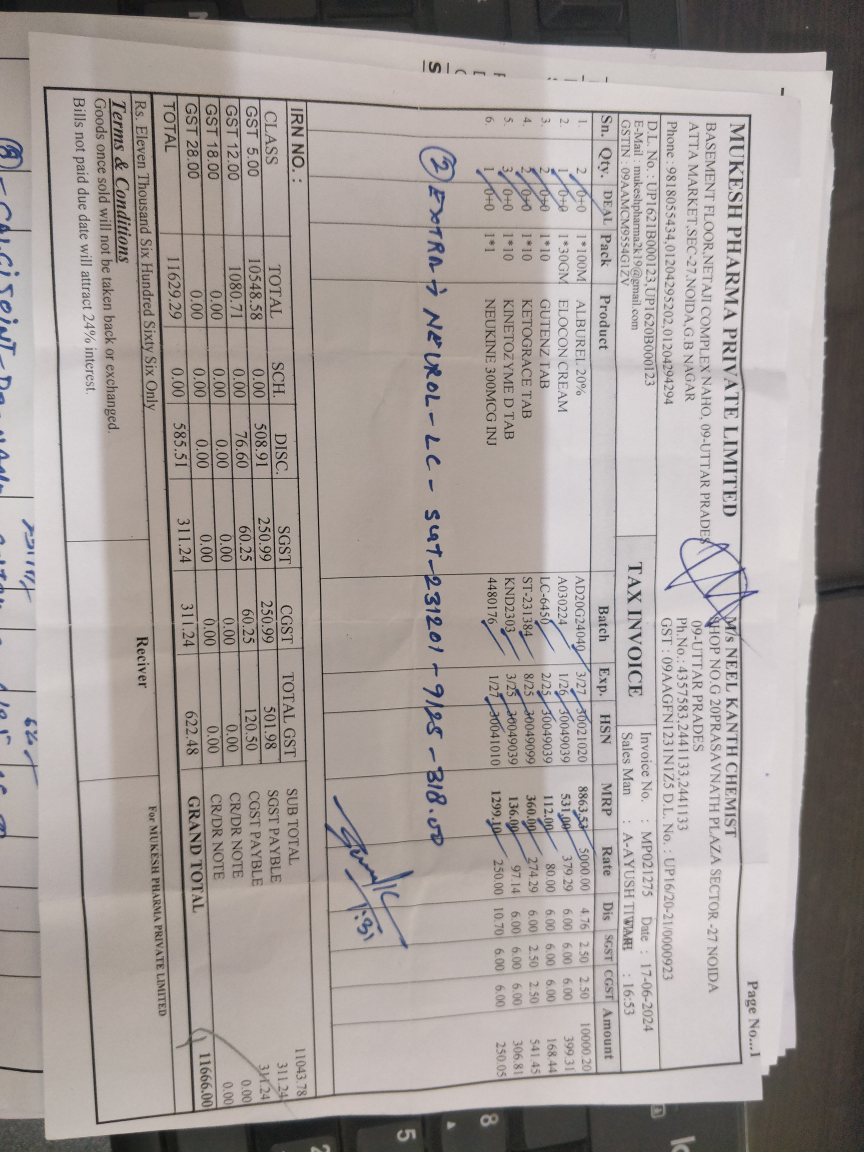 Page No...1
MUKESH PHARMA PRIVATE LIMITED
BASEMENT FLOOR,NETAJI COMPLEX NAHO, 09-UTTAR PRADES
ATTA MARKET,SEC-27,NOIDA,G.B NAGAR
Phone : 9818055434,01204295202,01204294294
D.L. No. : UP1621B000123,UP1620B000123
E-Mail : mukeshpharma2k19@gmail.com
GSTIN : 09AAMCM9554G1ZV
TAX INVOICE
M/s NEEL KANTH CHEMIST
SHOP NO.G 20PRASAVNATH PLAZA SECTOR -27 NOIDA
09-UTTAR PRADES
Ph.No.: 4357583,2441133,2441133
GST : 09AAGFN1231N1Z5 D.L. No. : UP16/20-21/0000923
Invoice No. : MP021275 Date : 17-06-2024
Sales Man : A-AYUSH : 16:53
Sn. Qty. DEAL Pack Product Batch Exp. HSN MRP Rate Dis SGST CGST Amount
1. 2 0+0 1*100M ALBUREL 20% AD20G24040 3/27 30021020 8863.53 5000.00 4.76 2.50 2.50 10000.20
2. 1 0+0 1*30GM ELOCON CREAM A030224 1/26 30049039 531.00 379.29 6.00 6.00 6.00 399.31
3. 2 0+0 1*10 GUTENZ TAB LC-6450 2/25 30049039 112.00 80.00 6.00 6.00 6.00 168.44
4. 0+0 1*10 KETOGRACE TAB ST-231384 8/25 30049099 360.00 274.29 6.00 2.50 2.50 541.45
5. 3 0+0 1*10 KINETOZYME D TAB KND2303 3/25 30049039 136.00 97.14 6.00 6.00 6.00 306.81
6. 1 0+0 1*1 NEUKINE 300MCG INJ 4480176 1/27 30041010 1299.10 250.00 10.70 6.00 6.00 250.05
② EXTRA → NEUROL-LC - SGT-231201 - 9/25 - 318.00
1:31
IRN NO. :
CLASS TOTAL SCH. DISC. SGST CGST TOTAL GST
GST 5.00 10548.58 0.00 508.91 250.99 250.99 501.98
GST 12.00 1080.71 0.00 76.60 60.25 60.25 120.50
GST 18.00 0.00 0.00 0.00 0.00 0.00 0.00
GST 28.00 0.00 0.00 0.00 0.00 0.00 0.00
TOTAL 11629.29 0.00 585.51 311.24 311.24 622.48
SUB TOTAL 11043.78
SGST PAYBLE 311.24
CGST PAYBLE 311.24
CR/DR NOTE 0.00
CR/DR NOTE 0.00
GRAND TOTAL 11666.00
Rs. Eleven Thousand Six Hundred Sixty Six Only
Terms & Conditions
Goods once sold will not be taken back or exchanged.
Bills not paid due date will attract 24% interest.
Reciver
For MUKESH PHARMA PRIVATE LIMITED